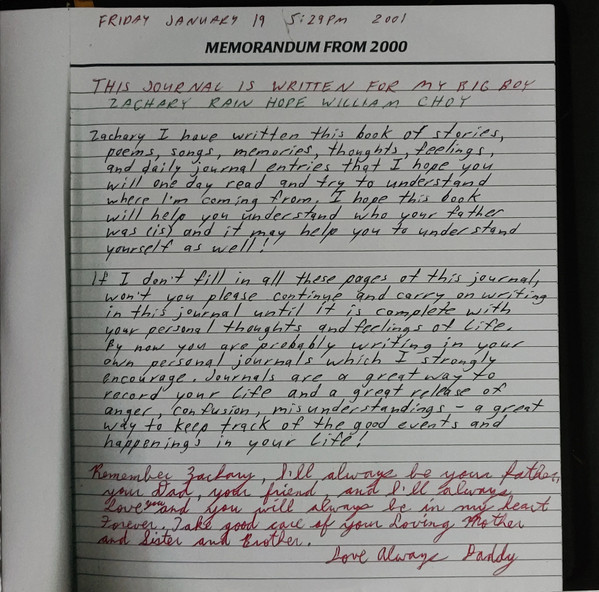 FRIDAY JANUARY 19 5:29PM 2001
MEMORANDUM FROM 2000
THIS JOURNAL IS WRITTEN FOR MY BIG BOY
ZACHARY RAIN HOPE WILLIAM CHOY
Zachary I have written this book of stories,
poems, songs, memories, thoughts, feelings,
and daily journal entries that I hope you
will one day read and try to understand
where I'm coming from. I hope this book
will help you understand who your father
was (is) and it may help you to understand
yourself as well!
If I don't fill in all these pages of this journal,
won't you please continue and carry on writing
in this journal until it is complete with
your personal thoughts and feelings of life.
By now you are probably writing in your
own personal journals which I strongly
encourage. Journals are a great way to
record your life and a great release of
anger, confusion, misunderstandings - a great
way to keep track of the good events and
happenings in your life!
Remember Zachary, I'll always be your father,
your Dad, your friend and I'll always
Love you and you will always be in my heart
Forever. Take good care of your Loving Mother
and Sister and Brother.
Love Always Daddy